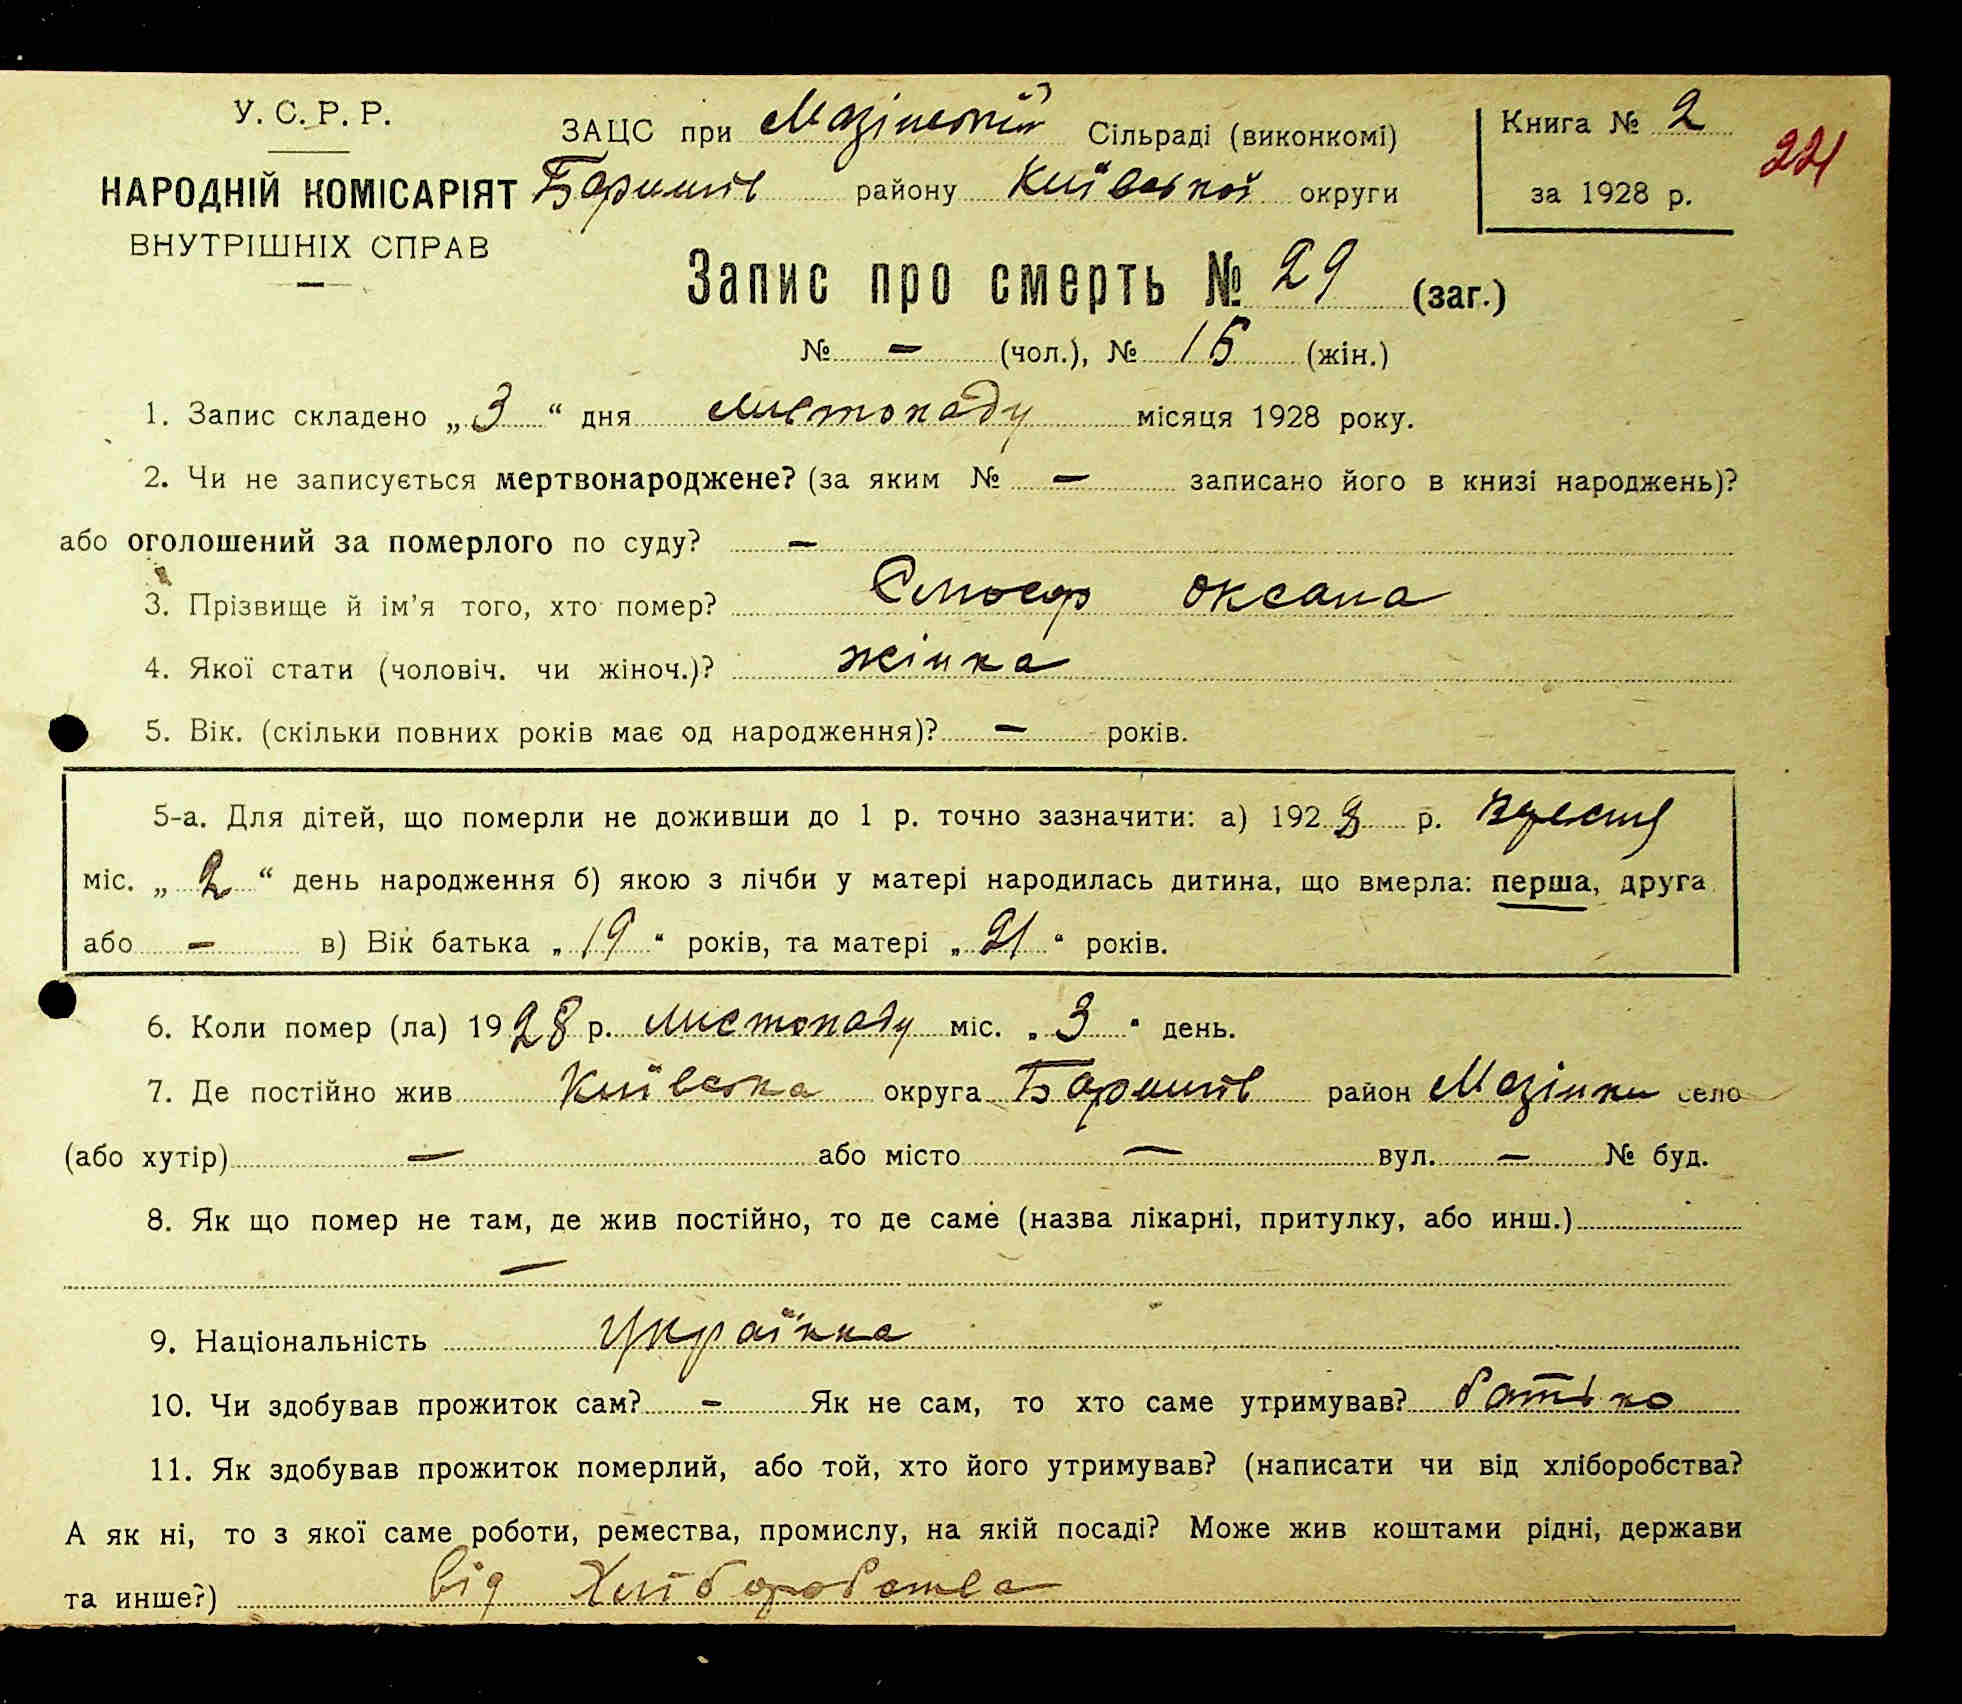 У. С. Р. Р.
НАРОДНІЙ КОМІСАРІЯТ
ВНУТРІШНІХ СПРАВ
ЗАЦС при Мазінській Сільраді (виконкомі)
Баришів району Київської округи
Книга № 2
за 1928 р.
221
Запис про смерть № 29 (заг.)
№ — (чол.), № 15 (жін.)
1. Запис складено „ 3 “ дня листопаду місяця 1928 року.
2. Чи не записується мертвонароджене? (за яким № — записано його в книзі народжень)?
або оголошений за померлого по суду? —
3. Прізвище й ім’я того, хто помер? Оксана
4. Якої стати (чоловіч. чи жіноч.)? жінка
5. Вік. (скільки повних років має од народження)? — років.
5-а. Для дітей, що померли не доживши до 1 р. точно зазначити: а) 1928 р. вересня
міс. „ 2 “ день народження б) якою з лічби у матері народилась дитина, що вмерла: перша, друга
або — в) Вік батька „ 19 “ років, та матері „ 21 “ років.
6. Коли помер (ла) 1928 р. листопаду міс. „ 3 “ день.
7. Де постійно жив Київська округа Баришів район Мазінки село
(або хутір) — або місто — вул. — № буд.
8. Як що помер не там, де жив постійно, то де саме (назва лікарні, притулку, або инш.)
—
9. Національність Українка
10. Чи здобував прожиток сам? — Як не сам, то хто саме утримував? батько
11. Як здобував прожиток померлий, або той, хто його утримував? (написати чи від хліборобства?
А як ні, то з якої саме роботи, ремества, промислу, на якій посаді? Може жив коштами рідні, держави
та инше?) від Хліборобства